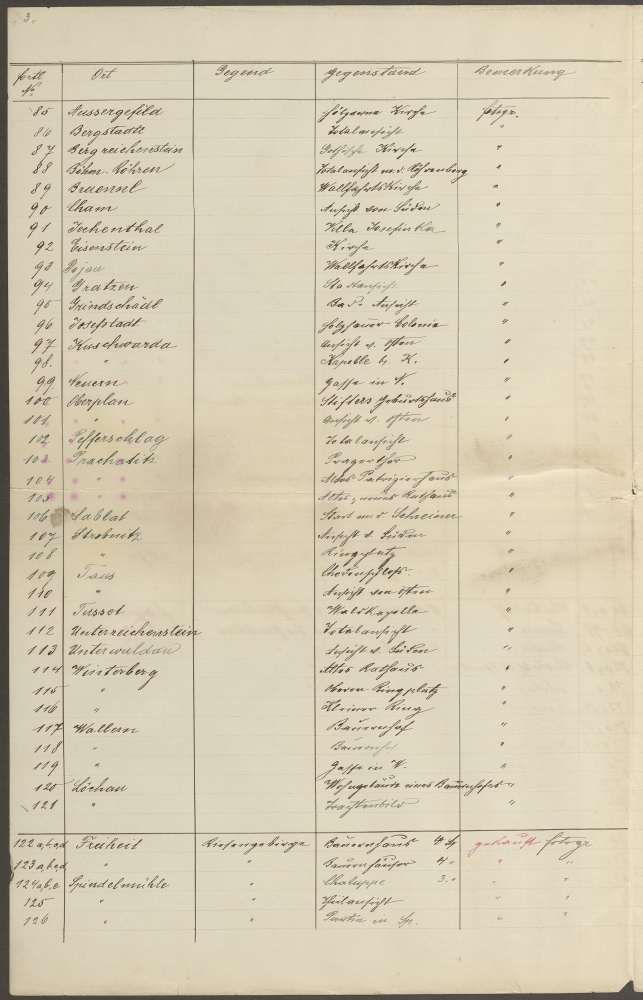 3.
fortl. No. Ort Gegend Gegenstand Bemerkung
85 Aussergefild hölzerne Kirche fotogr.
86 Bergstadtl Totalansicht "
87 Bergreichenstein Gothische Kirche "
88 Böhm. Röhren Totalansicht m. d. Röhrenberg "
89 Bruennl Wallfahrtskirche "
90 Cham Ansicht von Süden "
91 Eichenthal Villa "
92 Eisenstein Kirche "
93 Gojau Wallfahrtskirche "
94 Gratzen Stadtansicht "
95 Grindschädl Ansicht "
96 Josefstadt Holzhauer Colonie "
97 Kuschwarda Ansicht v. Osten "
98. " Kapelle b. K. "
99 Neuern Gasse in N. "
100 Oberplan Stifters Geburtshaus "
101 " Ansicht v. Osten "
102 Pfefferschlag Totalansicht "
103 Prachatitz Pragerthor "
104 " Altes Patrizierhaus "
105 " Altes, neues Rathaus "
106 Sablat Stadt und Schreiner "
107 Strobnitz Ansicht v. Süden "
108 " Ringplatz "
109 Taus Chodenschloss "
110 " Ansicht von Osten "
111 Tusset Waldkapelle "
112 Unterreichenstein Totalansicht "
113 Unterwuldau Ansicht v. Süden "
114 Winterberg Altes Rathaus "
115 " Oberer Ringplatz "
116 " Kleiner Ring "
117 Wallern Bauernhof "
118 " Bauernhof "
119 " Gasse in W. "
120 Löchau Wohngebäude eines Bauernhofes "
121 " Trachtenbild "
122 a,b,c,d Freiheit Riesengebirge Bauernhaus 4 gekauft fotogr
123 a,b,c,d " " Bauernhäuser 4 " " "
124 a,b,c Spindelmühle " Chaluppe 3 " " "
125 " " Teilansicht " "
126 " " Partie in Sp. " "